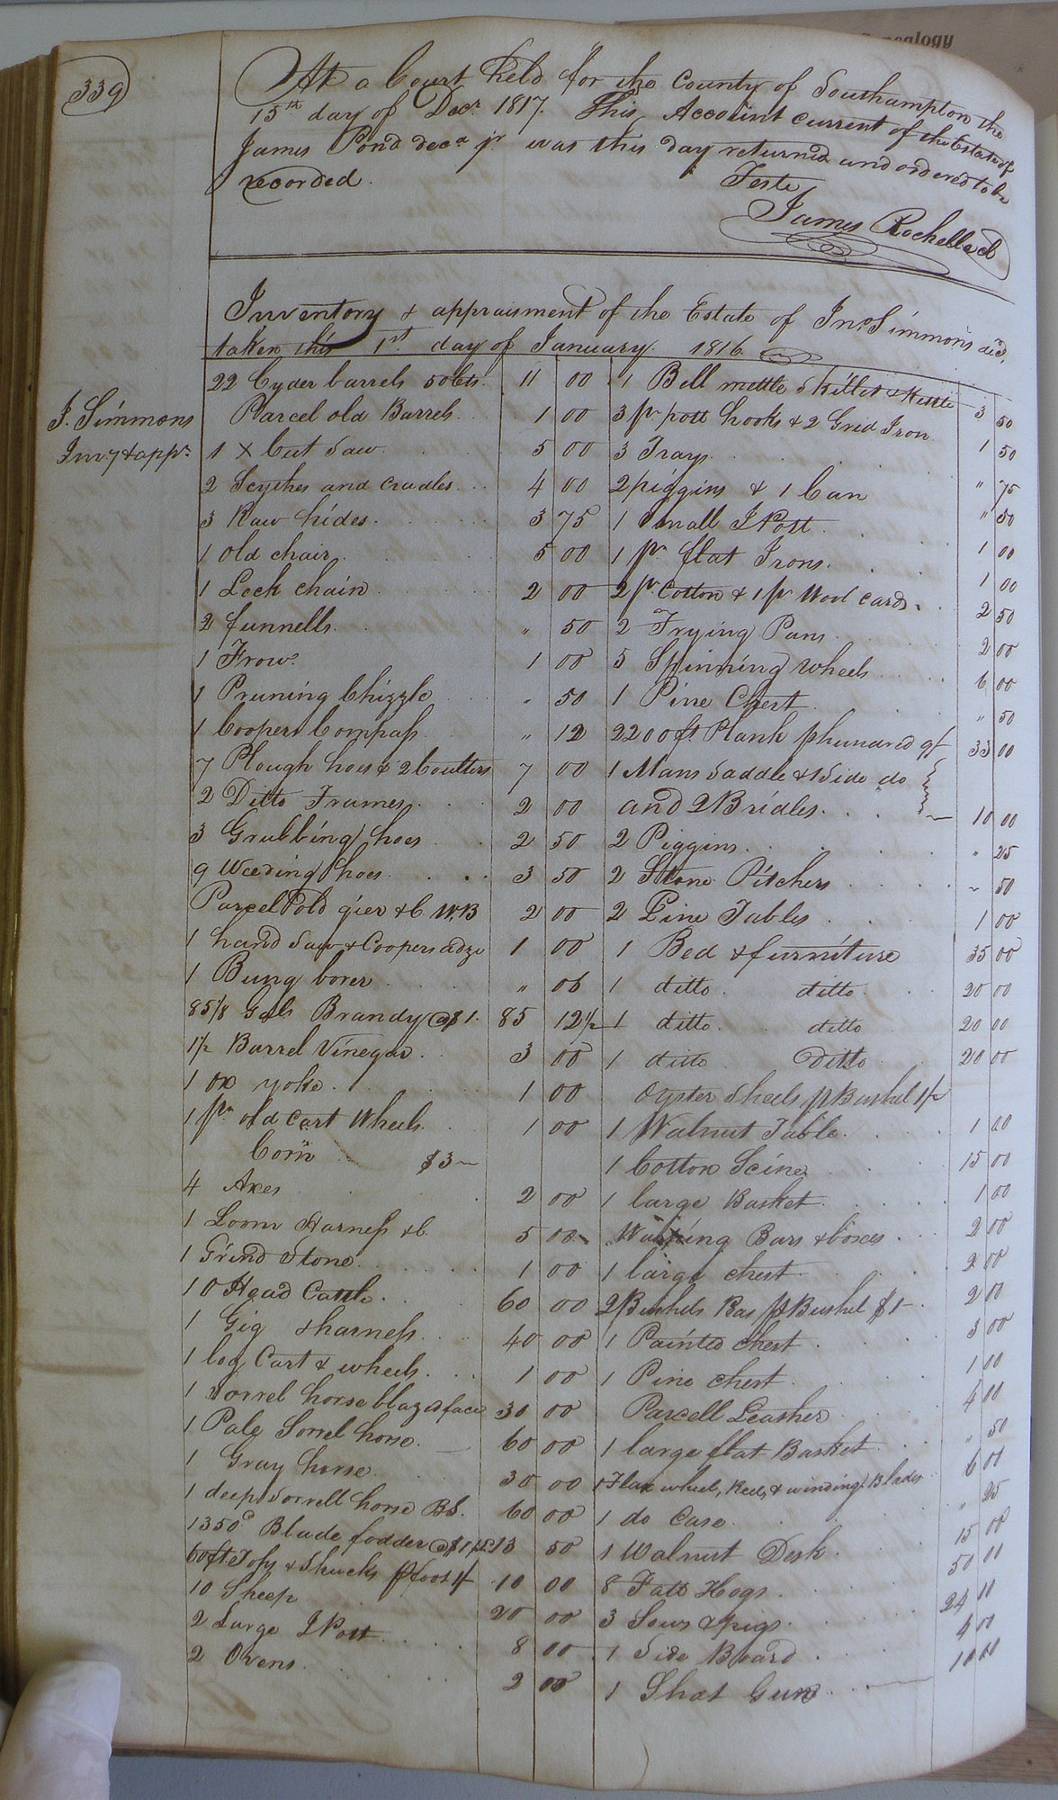 339
At a Court held for the County of Southampton the
15th day of Decr 1817. This Account current of the Estate of
James Pond decd jr was this day returned and ordered to be
recorded.
Teste
James Rochelle cl
Inventory & appraisment of the Estate of Jno Simmons decd,
taken this 1st day of January 1816
J. Simmons
Invy & appr
22 Cyder barrels 50 Cts. 11 00
Parcel old Barrels 1 00
1 X Cut Saw 5 00
2 Scythes and cradles 4 00
3 Raw hides 3 75
1 old chair 5 00
1 Lock chain 2 00
2 funnells " 50
1 Frow 1 00
1 Pruning Chizzle " 50
1 Coopers Compass " 12
7 Plough hoes & 2 Coulters 7 00
2 Ditto Frames 2 00
3 Grubbing hoes 2 50
9 Weeding hoes 3 50
Parcel old gier &C. W.B 2 00
1 hand Saw & Coopers adze 1 00
1 Bung borer " 06
85 1/8 Gals Brandy @ $1. 85 12½
1½ Barrel Vinegar 3 00
1 ox yoke 1 00
1 pr old Cart Wheels 1 00
Corn $3
4 Axes 2 00
1 Loom Harness &c. 5 00
1 Grind Stone 1 00
10 Head Cattle 60 00
1 Gig & harness 40 00
1 log Cart & wheels 1 00
1 Sorrel horse blazed face 30 00
1 Pale Sorrel horse 60 00
1 Gray horse 30 00
1 deep Sorrell horse B.S. 60 00
1350 Blade fodder @ $1 13 50
60 ft Tops & Shucks p foot 1/ 10 00
10 Sheep 20 00
2 Large I Pott 8 00
2 Ovens 2 00
1 Bell mettle Skillet & Kettle 3 50
3 pr pott hooks & 2 Grid Iron 1 50
3 Trays " 75
2 piggins & 1 Can " 50
1 Small I Pott 1 00
1 pr flat Irons 1 00
2 pr Cotton & 1 pr Wool cards 2 50
2 Frying Pans 2 00
5 Spinning wheels 6 00
1 Pine Chest " 50
2200 ft Plank p hundred 9/ 33 00
1 Mans Saddle & 1 Side do
and 2 Bridles 10 00
2 Piggins " 25
2 Stone Pitchers " 50
2 Pine Tables 1 00
1 Bed & furniture 35 00
1 ditto ditto 20 00
1 ditto ditto 20 00
1 ditto Ditto 20 00
Oyster Shels p Bushel
1 Walnut Table 1 00
1 Cotton Seine 15 00
1 large Basket 1 00
Bars & boxes 2 00
1 large chest 2 00
2 Bushels p Bushel $1 2 00
1 Painted chest 3 00
1 Pine chest 1 00
Parcell Leather 4 00
1 large flat Basket " 50
1 Flax wheel, Reel, & winding Blades 6 00
1 do Case " 25
1 Walnut Desk 15 00
8 Fatt Hogs 50 00
3 Sows & pigs 24 00
1 Side Board
1 Shot Gun 10 00